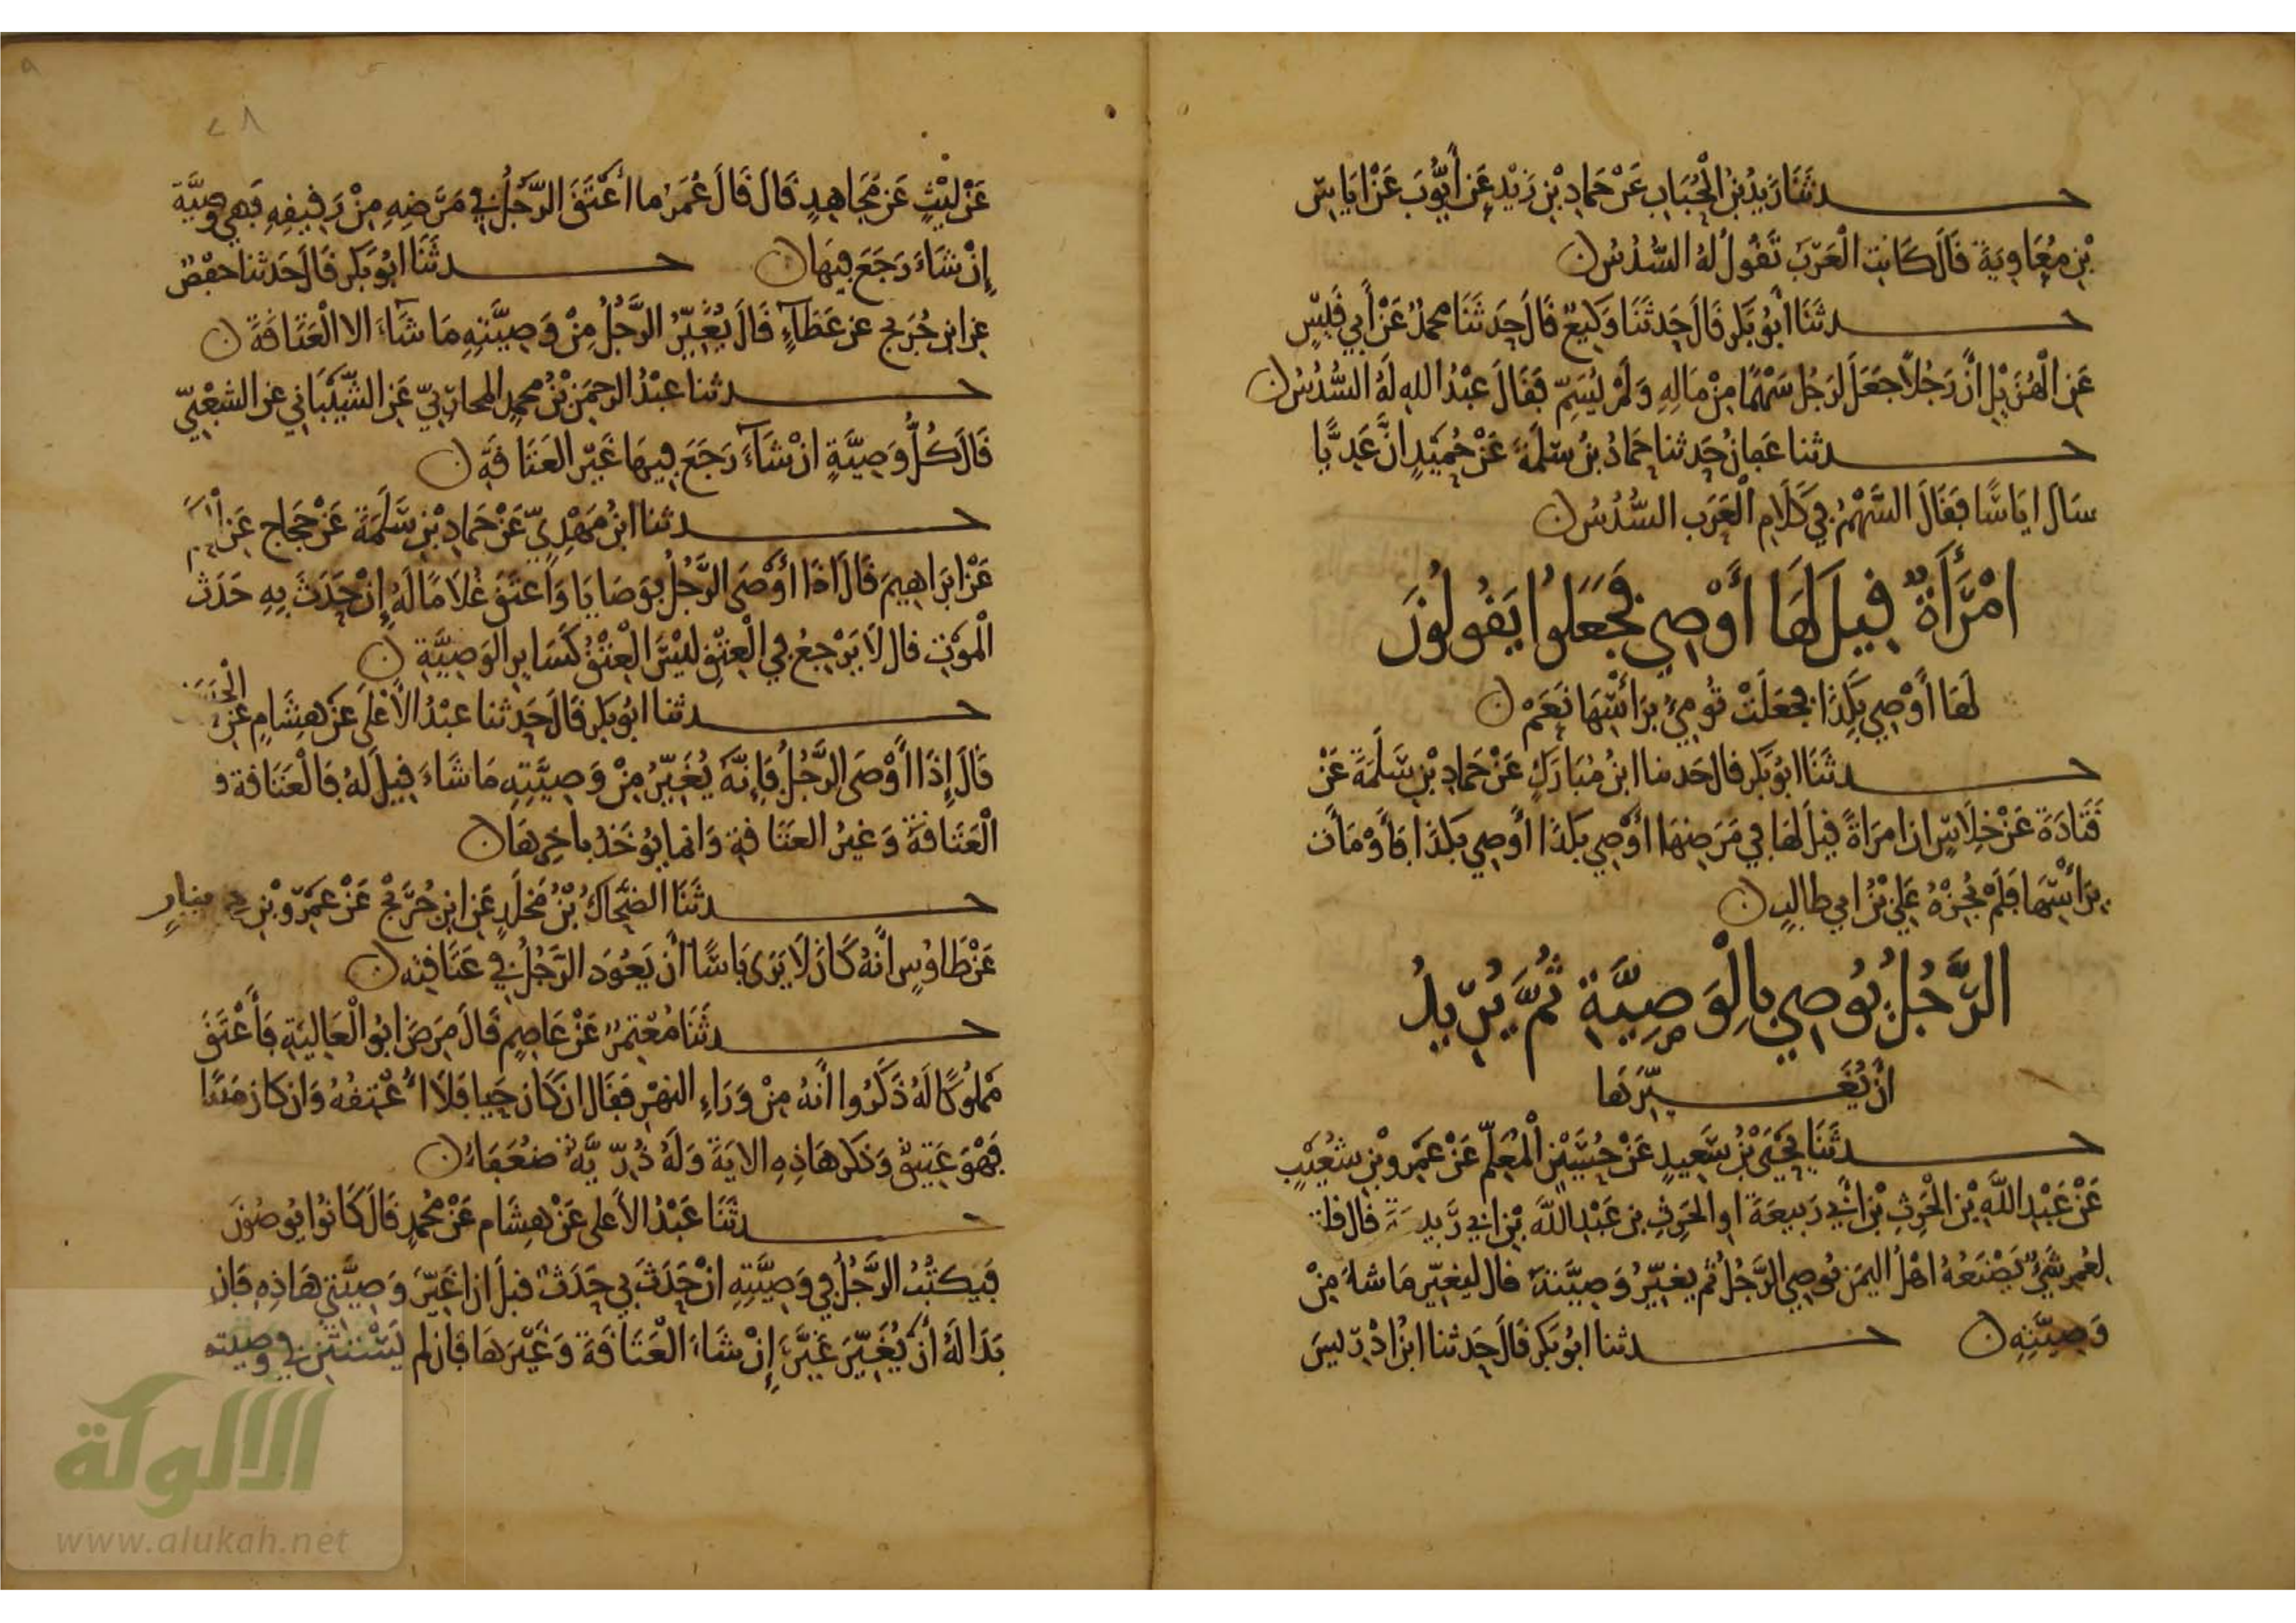 حدثنا زيد بن الحباب عن حماد بن زيد عن أيوب عن اياس
بن معاوية قال كانت العرب تقول له السدس
حدثنا أبو بكر قال حدثنا وكيع قال حدثنا محمد عن أبي قيس
عن الهزيل أن رجلا جعل لرجل سهما من ماله ولم يسم فقال عبد الله له السدس
حدثنا عفان حدثنا حماد بن سلمة عن حميد ان عديا
سال اياسا فقال السهم في كلام العرب السدس
امرأة قيل لها أوصي فجعلوا يقولون
لها أوصي بكذا فجعلت تومئ برأسها نعم
حدثنا ابو بكر قال حدثنا ابن مبارك عن حماد بن سلمة عن
قتادة عن خلاس ان امرأة قيل لها في مرضها أوصي بكذا أوصي بكذا فأومأت
برأسها فلم يجزه علي بن ابي طالب
الرجل يوصي بالوصية ثم يريد
ان يغيرها
حدثنا يحيى بن سعيد عن حسين المعلم عن عمرو بن شعيب
عن عبد الله بن الحرث بن أبي ربيعة او الحرث بن عبد الله بن ابي ربيعة قال قلت
لعمر شيء يصنعه اهل اليمن يوصي الرجل ثم يغير وصيته قال ليغير ما شاء من
وصيته حدثنا ابو بكر قال حدثنا ابن ادريس
٢٨
عن ليث عن مجاهد قال قال عمر ما أعتق الرجل في مرضه من رقيقه فهي وصية
إن شاء رجع فيها حدثنا ابو بكر قال حدثنا حفص
عن ابن جريج عن عطاء قال يغير الرجل من وصيته ما شاء الا العتاقة
حدثنا عبد الرحمن بن محمد المحاربي عن الشيباني عن الشعبي
قال كل وصية ان شاء رجع فيها غير العتاقة
حدثنا ابن مهدي عن حماد بن سلمة عن حجاج عن
عن ابراهيم قال اذا أوصى الرجل بوصايا وأعتق غلاما له إن حدث به حدث
الموت قال لا يرجع في العتق ليس العتق كساير الوصية
حدثنا ابو بكر قال حدثنا عبد الأعلى عن هشام عن الحسن
قال إذا أوصى الرجل فإنه يغير من وصيته ما شاء قيل له فالعتاقة قال
العتاقة وغير العتاقة وانما يوخذ باخرها
حدثنا الضحاك بن مخلد عن ابن جريج عن عمرو بن دينار
عن طاوس أنه كان لا يرى باسا أن يعود الرجل في عتاقته
حدثنا معتمر عن عاصم قال مرض ابو العالية فأعتق
مملوكا له ذكروا أنه من وراء النهر فقال ان كان حيا فلا أعتقه وان كان ميتا
فهو عتيق وذكر هاذه الاية وله ذرية ضعفاء
حدثنا عبد الأعلى عن هشام عن محمد قال كانوا يوصون
فيكتب الرجل في وصيته ان حدث بي حدث قبل ان اغير وصيتي هاذه فان
بدا له أن يغير غير إن شاء العتاقة وغيرها فان لم يستثن في وصيته
الألوكة
www.alukah.net